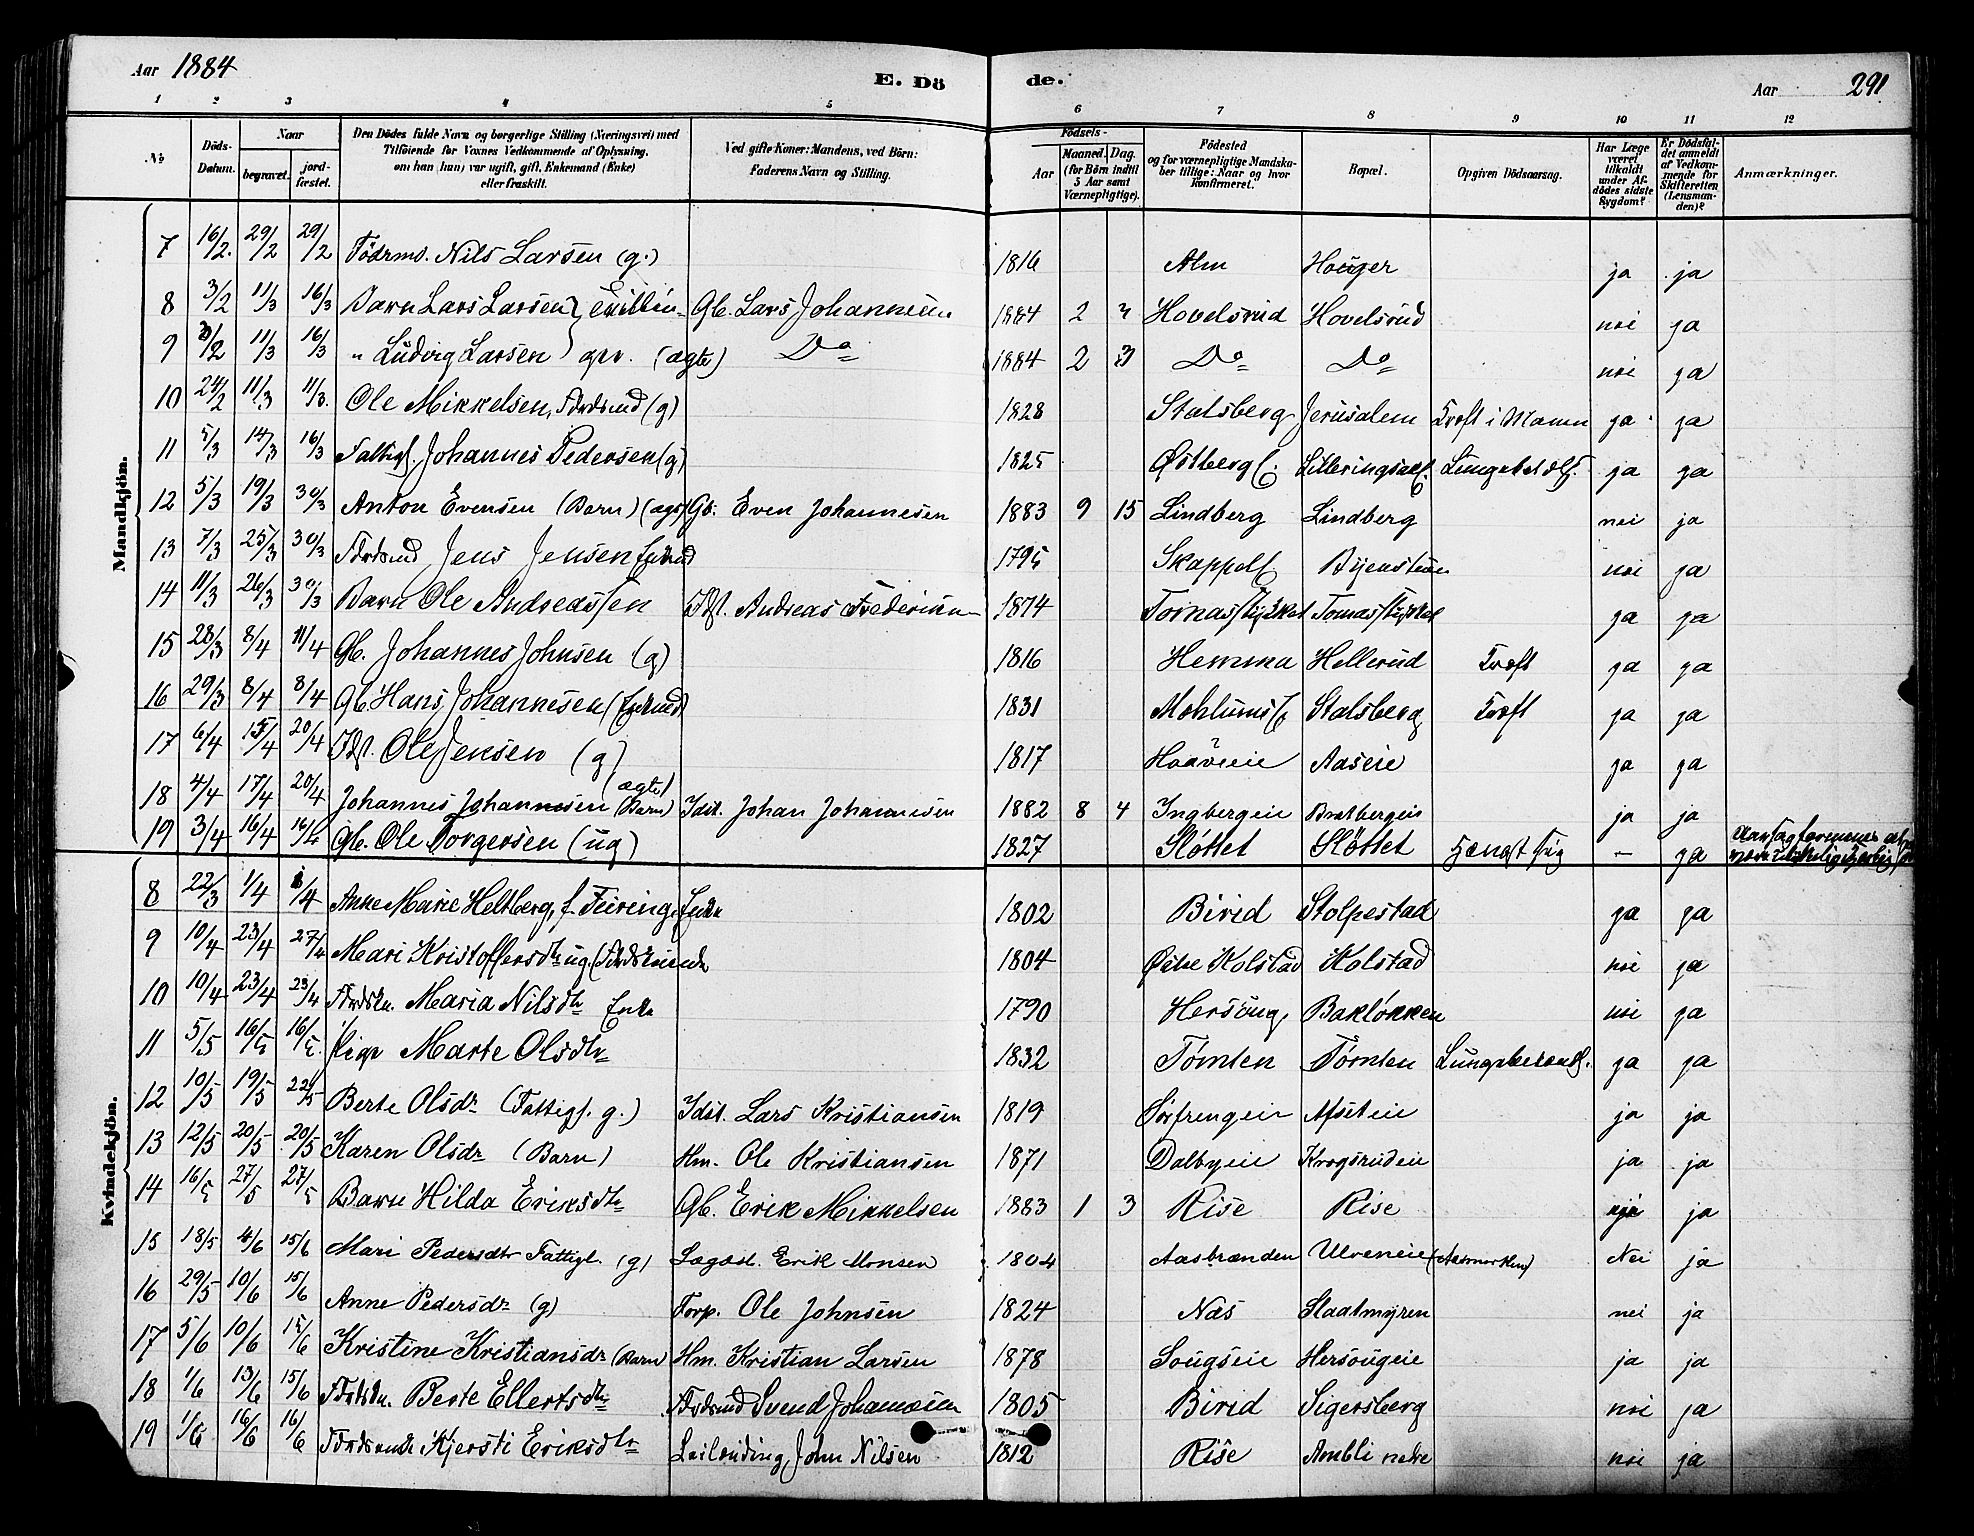 Aar 1884
E. Dö de.
Aar 291
1 2 3 4 5 6 7 8 9 10 11 12
No
Döds-Datum.
Naar
begravet.
jord-fæstet.
Den Dödes fulde Navn og borgerlige Stilling (Næringsvei) med
Tilföiende for Voxnes Vedkommende af Oplysning,
om han (hun) var ugift, gift, Enkemand (Enke)
eller fraskilt.
Ved gifte Koner: Mandens, ved Börn:
Faderens Navn og Stilling.
Födsels-
Aar
Maaned. Dag.
(for Börn indtil
5 Aar samt
Værnepligtige).
Födested
og for værnepligtige Mandska-
ber tillige: Naar og hvor
konfirmeret.
Bopæl.
Opgiven Dödsaarsag.
Har Læge
været
tilkaldt
under Af-
dödes sidste
Sygdom?
Er Dödsfal-
det anmeldt
af Vedkom-
mende for
Skifteretten
(Lensman-
den)?
Anmærkninger.
Mandkjön.
7 16/2 29/2 29/2 Födrmd. Nils Larsen (g.) 1816 Alm Houger ja ja
8 3/2 11/3 16/3 Barn Lars Larsen Gb. Lars Johannesen 1884 2 Hovelsrud Hovelsrud nei ja
9 11/3 16/3 " Ludvig Larsen (ægte) Do 1884 2 3 Do Do nei ja
10 24/2 11/3 11/3 Ole Mikkelsen, Fdrdsmd (g) 1828 Stalsberg Jerusalem Kræft i Maven ja ja
11 5/3 14/3 16/3 Fattigl. Johannes Pedersen (g) 1825 ja ja
12 5/3 19/3 30/3 Anton Evensen (Barn) (ægte) Gb. Even Johannesen 1883 9 15 Lindberg Lindberg nei ja
13 7/3 25/3 30/3 Fdrdsmd Jens Jensen Enkmd 1795 nei ja
14 11/3 26/3 30/3 Barn Ole Andreassen Idst. Andreas Frederiksen 1874 Tornasstykket Tomasstykket ja ja
15 28/3 8/4 11/4 Gb. Johannes Johnsen (g) 1816 Hemma Hellerud Kræft ja ja
16 29/3 8/4 8/4 Gb. Hans Johannesen (Enkmd) 1831 Stalsberg Kræft ja ja
17 6/4 15/4 20/4 Idst. Ole Jensen (g) 1817 Aaseie ja ja
18 4/4 17/4 20/4 Johannes Johannesen (Barn) (ægte) Idst. Johan Johannesen 1882 8 4 Ingbergeie Bratbergeie ja ja
19 3/4 16/4 16/4 Gb. Ole Torgersen (ug) 1827 Slöttet Slöttet Hængt sig — ja
Kvindekjön.
8 22/3 1/4 1/4 Anne Marie Heltberg, f. Feiring, Enke 1802 Birid Stolpestad ja ja
9 10/4 23/4 27/4 Mari Kristoffersdtr ug. (Fdrdskvinde 1804 Østre Kolstad Kolstad nei ja
10 10/4 23/4 23/4 Fdrdskv. Maria Nilsdtr Enke 1790 Hersoug Bakløkken nei ja
11 5/5 16/5 16/5 Pige Marte Olsdtr 1832 Tömten Tömten ja ja
12 10/5 19/5 22/5 Berte Olsdr (Fattigl. g.) Idst. Lars Kristiansen 1819 Afseteie ja ja
13 12/5 20/5 20/5 Karen Olsdr (Barn) Hm. Ole Kristiansen 1871 Dalbyeie Krogsrudeie ja ja
14 16/5 27/5 27/5 Barn Hilda Eriksdtr Gb. Erik Mikkelsen 1883 1 3 Rise Rise ja
15 18/5 4/6 15/6 Mari Pedersdtr Fattigl. (g) Lægdsl. Erik Monsen 1804 Aasbrænden Ulveneie (Aasmarken) Nei ja
16 29/5 10/6 15/6 Anne Pedersdr (g) Torp. Ole Johnsen 1824 Næs Slaatmyren nei ja
17 5/6 10/6 15/6 Kristine Kristiansdr (Barn) Hm. Kristian Larsen 1878 Sougseie Hersougeie ja ja
18 1/6 13/6 15/6 Fdrdskv. Berte Ellertsdtr Fdrdsmd Svend Johannesen 1805 Birid Sigersberg nei ja
19 1/6 16/6 16/6 Kjersti Eriksdtr Leilending John Nilsen 1812 Rise Ambli nedre nei ja